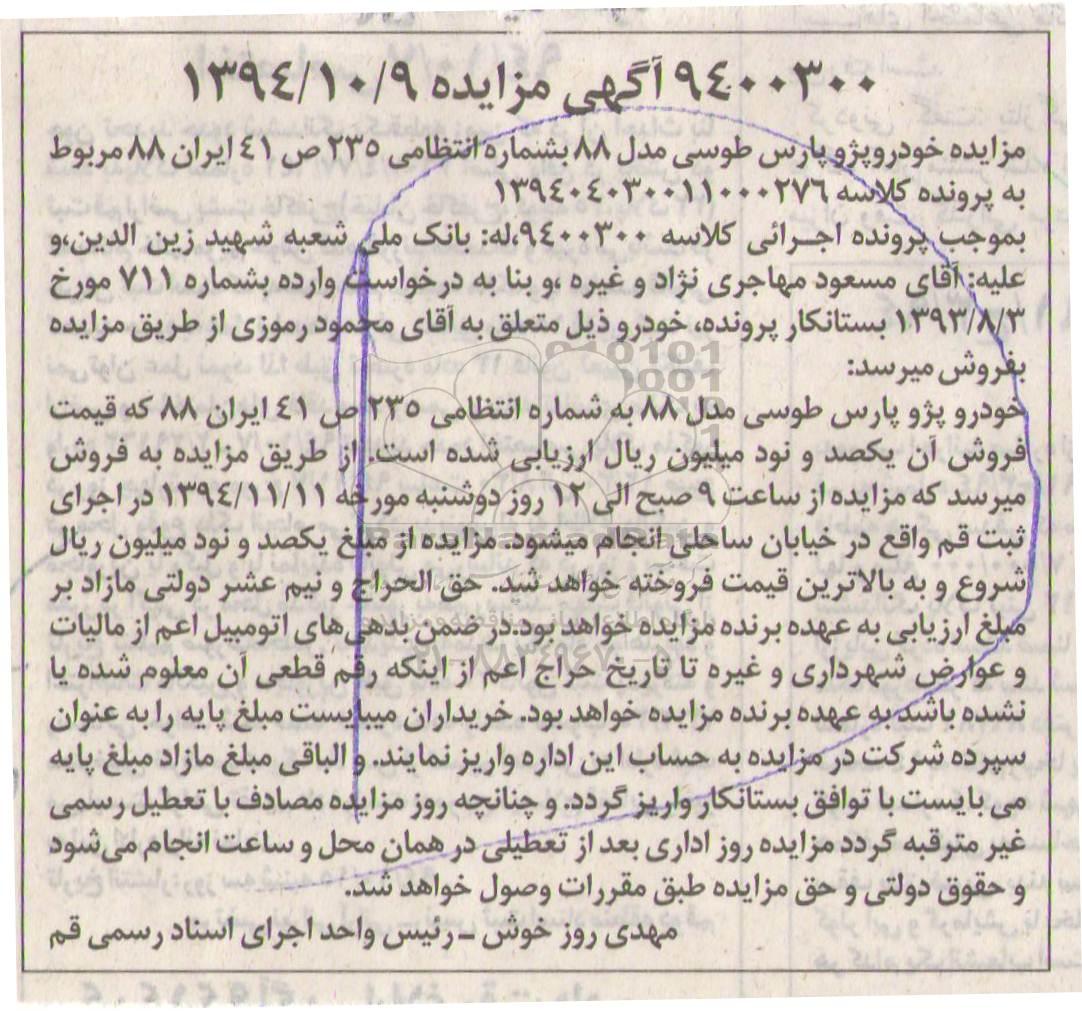 ۹۴۰۰۳۰۰ آگهی مزایده ۱۳۹۴/۱۰/۹
مزایده خودروپژو پارس طوسی مدل ۸۸ بشماره انتظامی ۲۳۵ ص ۴۱ ایران ۸۸ مربوط
به پرونده کلاسه ۱۳۹۴۰۴۰۳۰۰۱۱۰۰۰۲۷۶
بموجب پرونده اجرائی کلاسه ۹۴۰۰۳۰۰،له: بانک ملی شعبه شهید زین الدین،و
علیه: آقای مسعود مهاجری نژاد و غیره ،و بنا به درخواست وارده بشماره ۷۱۱ مورخ
۱۳۹۳/۸/۳ بستانکار پرونده، خودرو ذیل متعلق به آقای محمود رموزی از طریق مزایده
بفروش میرسد:
خودرو پژو پارس طوسی مدل ۸۸ به شماره انتظامی ۲۳۵ ص ۴۱ ایران ۸۸ که قیمت
فروش آن یکصد و نود میلیون ریال ارزیابی شده است. از طریق مزایده به فروش
میرسد که مزایده از ساعت ۹ صبح الی ۱۲ روز دوشنبه مورخه ۱۳۹۴/۱۱/۱۱ در اجرای
ثبت قم واقع در خیابان ساحلی انجام میشود. مزایده از مبلغ یکصد و نود میلیون ریال
شروع و به بالاترین قیمت فروخته خواهد شد. حق الحراج و نیم عشر دولتی مازاد بر
مبلغ ارزیابی به عهده برنده مزایده خواهد بود.در ضمن بدهی‌های اتومبیل اعم از مالیات
و عوارض شهرداری و غیره تا تاریخ حراج اعم از اینکه رقم قطعی آن معلوم شده یا
نشده باشد به عهده برنده مزایده خواهد بود. خریداران میبایست مبلغ پایه را به عنوان
سپرده شرکت در مزایده به حساب این اداره واریز نمایند. و الباقی مبلغ مازاد مبلغ پایه
می بایست با توافق بستانکار واریز گردد. و چنانچه روز مزایده مصادف با تعطیل رسمی
غیر مترقبه گردد مزایده روز اداری بعد از تعطیلی در همان محل و ساعت انجام می‌شود
و حقوق دولتی و حق مزایده طبق مقررات وصول خواهد شد.
مهدی روز خوش ـ رئیس واحد اجرای اسناد رسمی قم